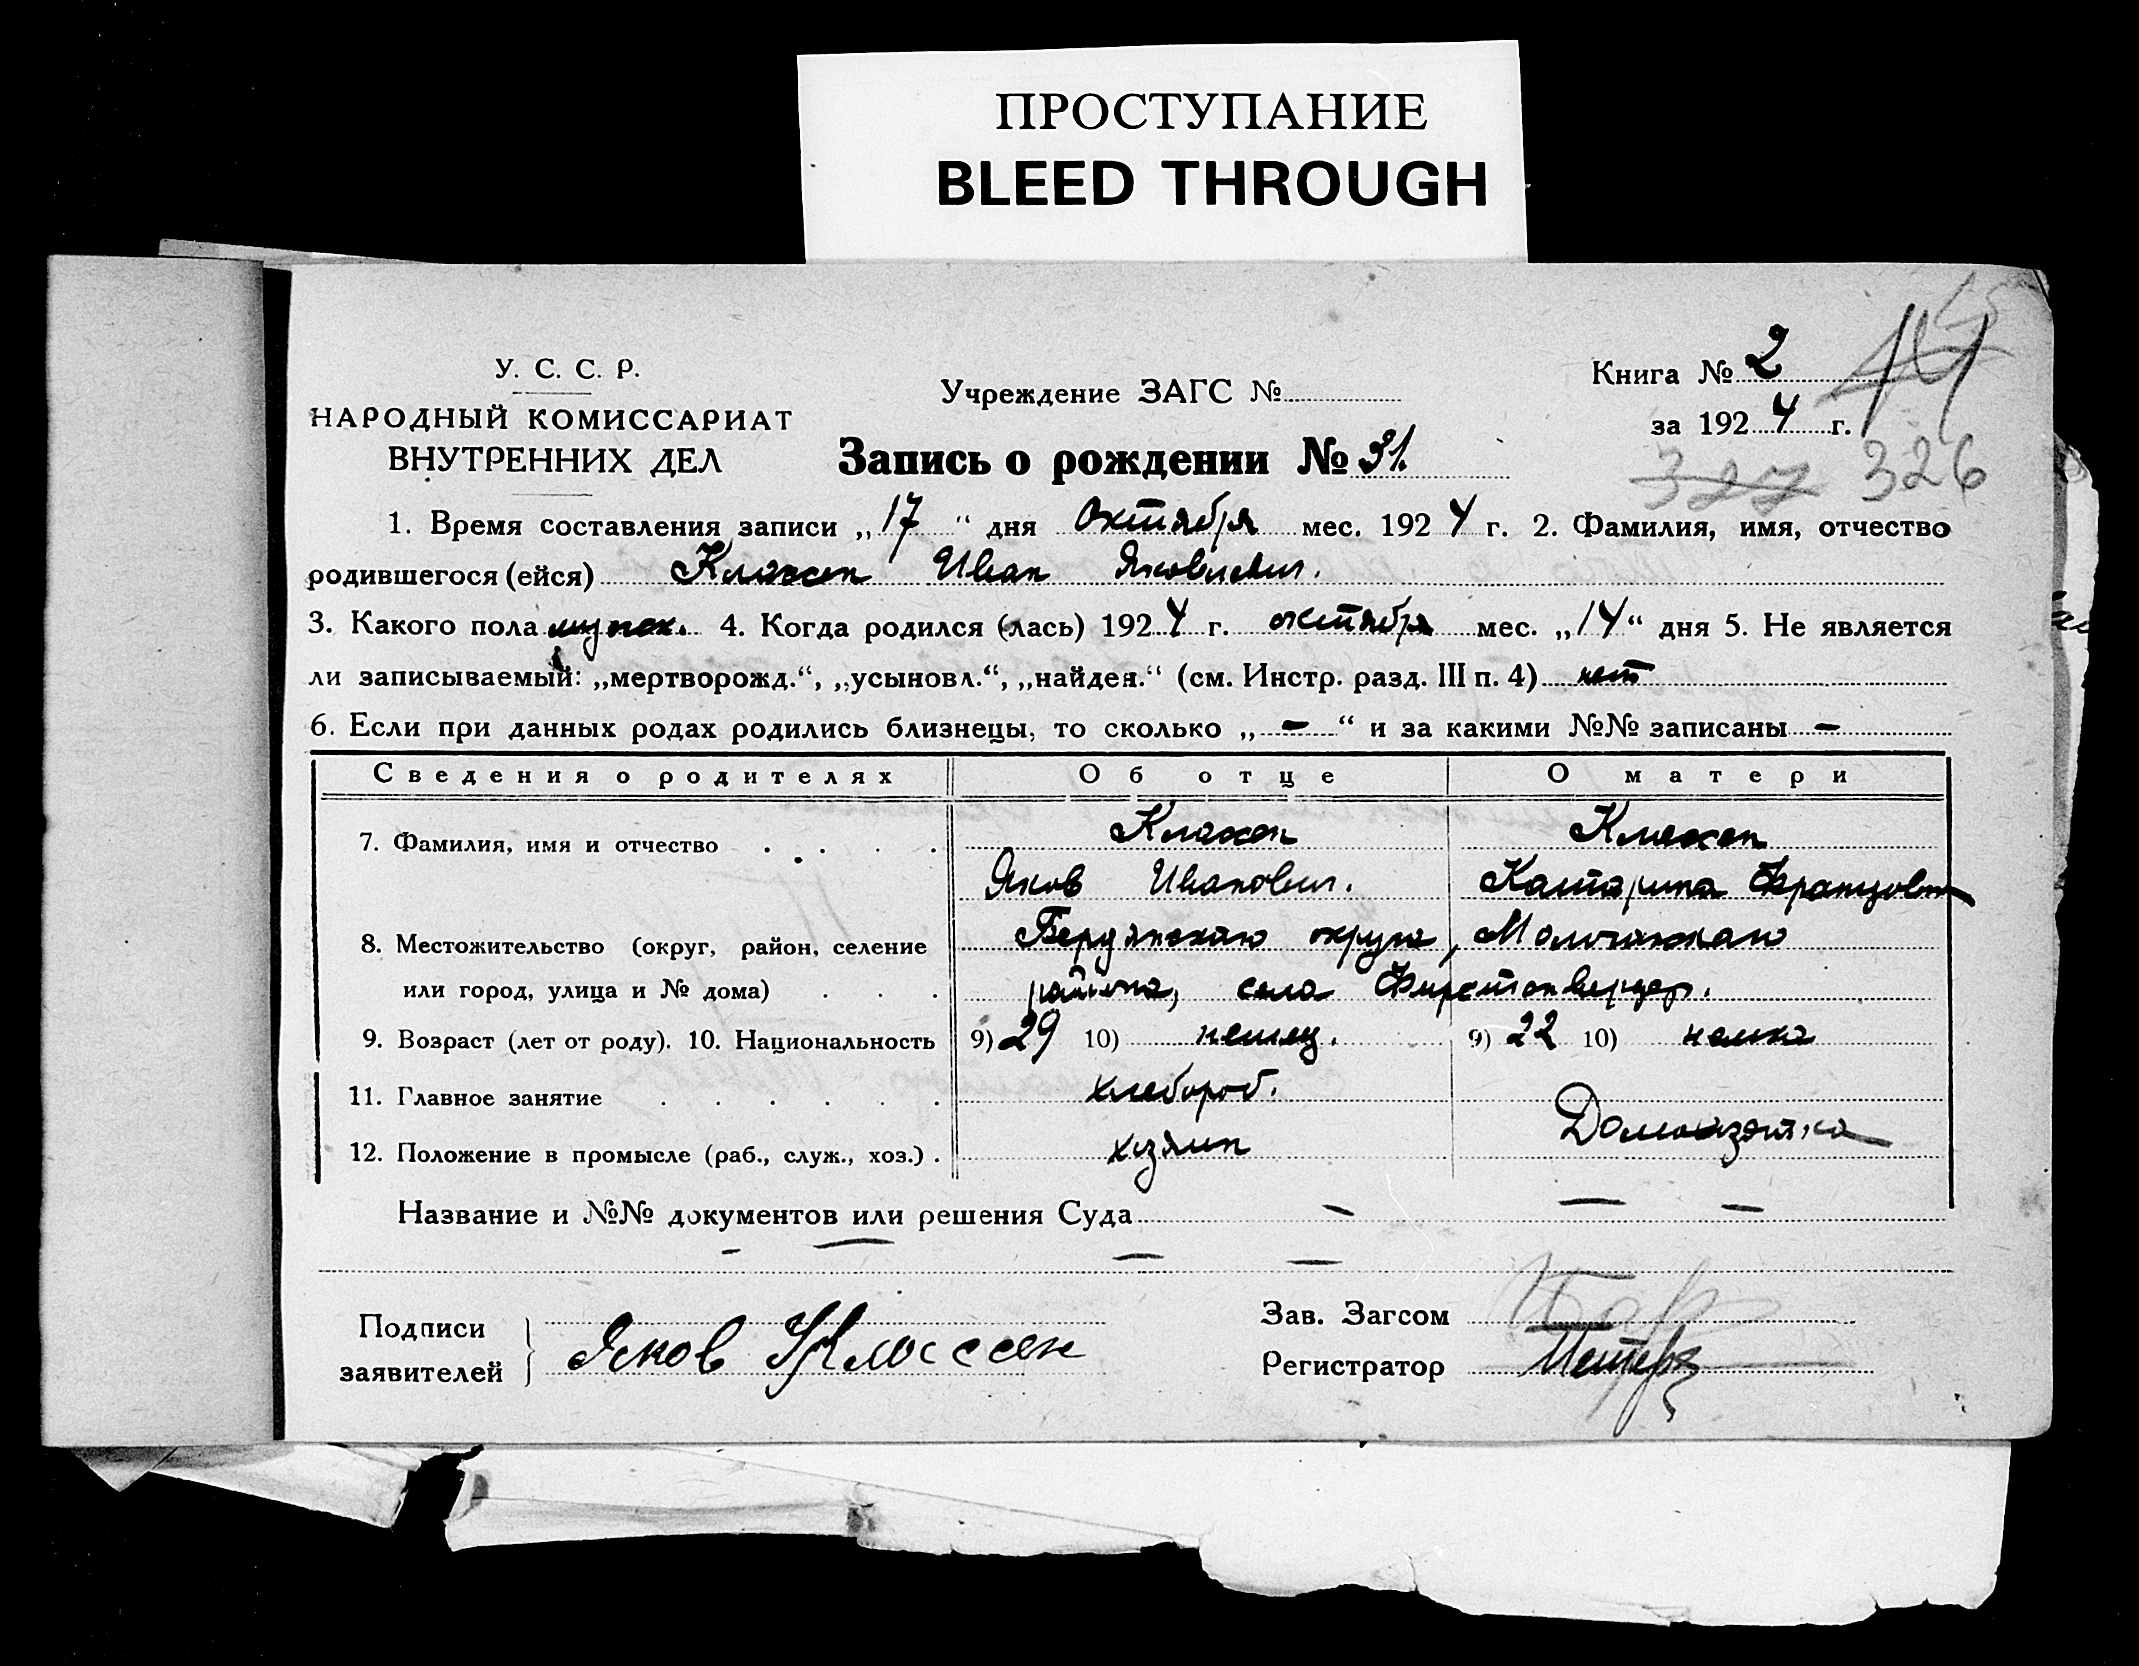 ПРОСТУПАНИЕ
BLEED THROUGH
У. С. С. Р.
НАРОДНЫЙ КОМИССАРИАТ
ВНУТРЕННИХ ДЕЛ
Учреждение ЗАГС №
Запись о рождении № 31.
Книга № 2
за 1924 г.
327 326
1. Время составления записи „17“ дня Октября мес. 1924 г. 2. Фамилия, имя, отчество
родившегося (ейся) Классен Иван Яковлевич.
3. Какого пола мужск. 4. Когда родился (лась) 1924 г. октября мес. „14“ дня 5. Не является
ли записываемый: „мертворожд.“, „усыновл.“, „найден.“ (см. Инстр. разд. III п. 4) нет
6. Если при данных родах родились близнецы, то сколько „-“ и за какими №№ записаны -
Сведения о родителях Об отце О матери
7. Фамилия, имя и отчество Классен Классен
Яков Иванович. Катарина Францовн
8. Местожительство (округ, район, селение Бердянского округа, Молочанского
или город, улица и № дома) района, села Фирстенвердер.
9. Возраст (лет от роду). 10. Национальность 9) 29 10) немец. 9) 22 10) немка
11. Главное занятие хлебороб.
Домохозяйка
12. Положение в промысле (раб., служ., хоз.) хозяин
Название и №№ документов или решения Суда - - -
- - - -
Подписи
заявителей } Яков Классен
Зав. Загсом
Регистратор Петерс